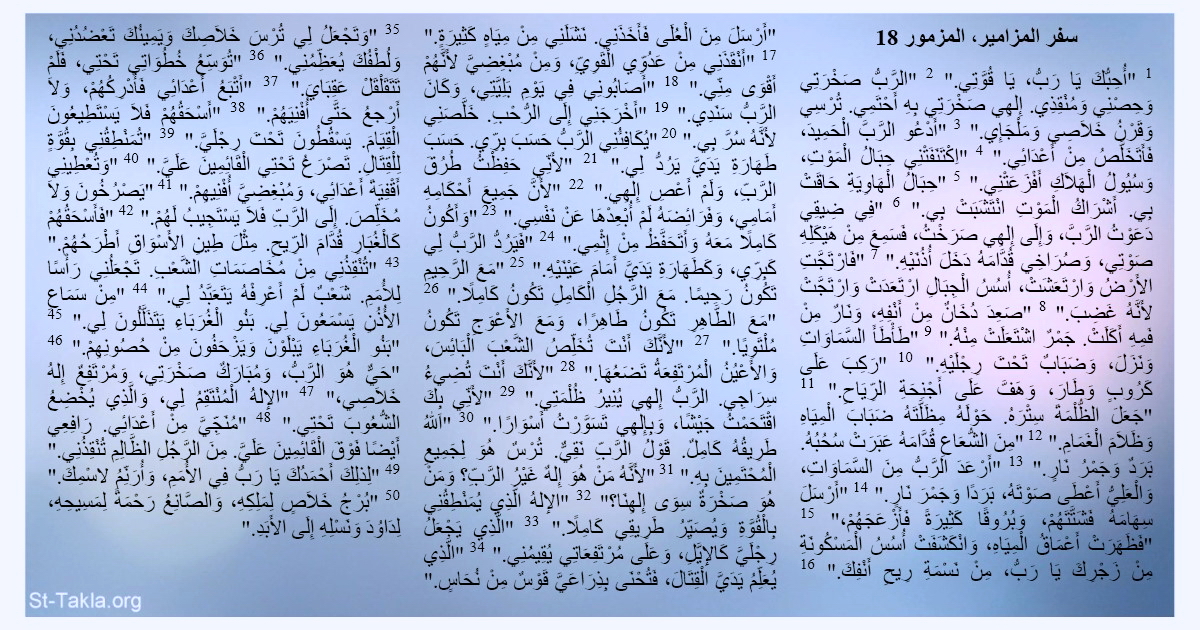 سفر المزامير، المزمور 18
1 "أُحِبُّكَ يَا رَبُّ، يَا قُوَّتِي." 2 "الرَّبُّ صَخْرَتِي
وَحِصْنِي وَمُنْقِذِي. إِلهِي صَخْرَتِي بِهِ أَحْتَمِي. تُرْسِي
وَقَرْنُ خَلاَصِي وَمَلْجَإِي." 3 "أَدْعُو الرَّبَّ الْحَمِيدَ،
فَأَتَخَلَّصُ مِنْ أَعْدَائِي." 4 "اِكْتَنَفَتْنِي حِبَالُ الْمَوْتِ،
وَسُيُولُ الْهَلاَكِ أَفْزَعَتْنِي." 5 "حِبَالُ الْهَاوِيَةِ حَاقَتْ
بِي. أَشْرَاكُ الْمَوْتِ انْتَشَبَتْ بِي." 6 "فِي ضِيقِي
دَعَوْتُ الرَّبَّ، وَإِلَى إِلهِي صَرَخْتُ، فَسَمِعَ مِنْ هَيْكَلِهِ
صَوْتِي، وَصُرَاخِي قُدَّامَهُ دَخَلَ أُذُنَيْهِ." 7 "فَارْتَجَّتِ
الأَرْضُ وَارْتَعَشَتْ، أُسُسُ الْجِبَالِ ارْتَعَدَتْ وَارْتَجَّتْ
لأَنَّهُ غَضِبَ." 8 "صَعِدَ دُخَانٌ مِنْ أَنْفِهِ، وَنَارٌ مِنْ
فَمِهِ أَكَلَتْ. جَمْرٌ اشْتَعَلَتْ مِنْهُ." 9 "طَأْطَأَ السَّمَاوَاتِ
وَنَزَلَ، وَضَبَابٌ تَحْتَ رِجْلَيْهِ." 10 "رَكِبَ عَلَى
كَرُوبٍ وَطَارَ، وَهَفَّ عَلَى أَجْنِحَةِ الرِّيَاحِ." 11
"جَعَلَ الظُّلْمَةَ سِتْرَهُ. حَوْلَهُ مِظَلَّتَهُ ضَبَابَ الْمِيَاهِ
وَظَلاَمَ الْغَمَامِ." 12 "مِنَ الشُّعَاعِ قُدَّامَهُ عَبَرَتْ سُحُبُهُ.
بَرَدٌ وَجَمْرُ نَارٍ." 13 "أَرْعَدَ الرَّبُّ مِنَ السَّمَاوَاتِ،
وَالْعَلِيُّ أَعْطَى صَوْتَهُ، بَرَدًا وَجَمْرَ نَارٍ." 14 "أَرْسَلَ
سِهَامَهُ فَشَتَّتَهُمْ، وَبُرُوقًا كَثِيرَةً فَأَزْعَجَهُمْ،" 15
"فَظَهَرَتْ أَعْمَاقُ الْمِيَاهِ، وَانْكَشَفَتْ أُسُسُ الْمَسْكُونَةِ
مِنْ زَجْرِكَ يَا رَبُّ، مِنْ نَسْمَةِ رِيحِ أَنْفِكَ." 16
"أَرْسَلَ مِنَ الْعُلَى فَأَخَذَنِي. نَشَلَنِي مِنْ مِيَاهٍ كَثِيرَةٍ."
17 "أَنْقَذَنِي مِنْ عَدُوِّي الْقَوِيِّ، وَمِنْ مُبْغِضِيَّ لأَنَّهُمْ
أَقْوَى مِنِّي." 18 "أَصَابُونِي فِي يَوْمِ بَلِيَّتِي، وَكَانَ
الرَّبُّ سَنَدِي." 19 "أَخْرَجَنِي إِلَى الرُّحْبِ. خَلَّصَنِي
لأَنَّهُ سُرَّ بِي." 20 "يُكَافِئُنِي الرَّبُّ حَسَبَ بِرِّي. حَسَبَ
طَهَارَةِ يَدَيَّ يَرُدُّ لِي." 21 "لأَنِّي حَفِظْتُ طُرُقَ
الرَّبِّ، وَلَمْ أَعْصِ إِلهِي." 22 "لأَنَّ جَمِيعَ أَحْكَامِهِ
أَمَامِي، وَفَرَائِضَهُ لَمْ أُبْعِدْهَا عَنْ نَفْسِي." 23 "وَأَكُونُ
كَامِلاً مَعَهُ وَأَتَحَفَّظُ مِنْ إِثْمِي." 24 "فَيَرُدُّ الرَّبُّ لِي
كَبِرِّي، وَكَطَهَارَةِ يَدَيَّ أَمَامَ عَيْنَيْهِ." 25 "مَعَ الرَّحِيمِ
تَكُونُ رَحِيمًا. مَعَ الرَّجُلِ الْكَامِلِ تَكُونُ كَامِلاً." 26
"مَعَ الطَّاهِرِ تَكُونُ طَاهِرًا، وَمَعَ الأَعْوَجِ تَكُونُ
مُلْتَوِيًا." 27 "لأَنَّكَ أَنْتَ تُخَلِّصُ الشَّعْبَ الْبَائِسَ،
وَالأَعْيُنُ الْمُرْتَفِعَةُ تَضَعُهَا." 28 "لأَنَّكَ أَنْتَ تُضِيءُ
سِرَاجِي. الرَّبُّ إِلهِي يُنِيرُ ظُلْمَتِي." 29 "لأَنِّي بِكَ
اقْتَحَمْتُ جَيْشًا، وَبِإِلهِي تَسَوَّرْتُ أَسْوَارًا." 30 "اَللهُ
طَرِيقُهُ كَامِلٌ. قَوْلُ الرَّبِّ نَقِيٌّ. تُرْسٌ هُوَ لِجَمِيعِ
الْمُحْتَمِينَ بِهِ." 31 "لأَنَّهُ مَنْ هُوَ إِلهٌ غَيْرُ الرَّبِّ؟ وَمَنْ
هُوَ صَخْرَةٌ سِوَى إِلهِنَا؟" 32 "الإِلهُ الَّذِي يُمَنْطِقُنِي
بِالْقُوَّةِ وَيُصَيِّرُ طَرِيقِي كَامِلاً." 33 "الَّذِي يَجْعَلُ
رِجْلَيَّ كَالإِيَّلِ، وَعَلَى مُرْتَفِعَاتِي يُقِيمُنِي." 34 "الَّذِي
يُعَلِّمُ يَدَيَّ الْقِتَالَ، فَتُحْنَى بِذِرَاعَيَّ قَوْسٌ مِنْ نُحَاسٍ."
35 "وَتَجْعَلُ لِي تُرْسَ خَلاَصِكَ وَيَمِينُكَ تَعْضُدُنِي،
وَلُطْفُكَ يُعَظِّمُنِي." 36 "تُوَسِّعُ خُطُوَاتِي تَحْتِي، فَلَمْ
تَتَقَلْقَلْ عَقِبَايَ." 37 "أَتْبَعُ أَعْدَائِي فَأُدْرِكُهُمْ، وَلاَ
أَرْجِعُ حَتَّى أُفْنِيَهُمْ." 38 "أَسْحَقُهُمْ فَلاَ يَسْتَطِيعُونَ
الْقِيَامَ. يَسْقُطُونَ تَحْتَ رِجْلَيَّ." 39 "تُمَنْطِقُنِي بِقُوَّةٍ
لِلْقِتَالِ. تَصْرَعُ تَحْتِي الْقَائِمِينَ عَلَيَّ." 40 "وَتُعْطِينِي
أَقْفِيَةَ أَعْدَائِي، وَمُبْغِضِيَّ أُفْنِيهِمْ." 41 "يَصْرُخُونَ وَلاَ
مُخَلِّصَ. إِلَى الرَّبِّ فَلاَ يَسْتَجِيبُ لَهُمْ." 42 "فَأَسْحَقُهُمْ
كَالْغُبَارِ قُدَّامَ الرِّيحِ. مِثْلَ طِينِ الأَسْوَاقِ أَطْرَحُهُمْ."
43 "تُنْقِذُنِي مِنْ مُخَاصَمَاتِ الشَّعْبِ. تَجْعَلُنِي رَأْسًا
لِلأُمَمِ. شَعْبٌ لَمْ أَعْرِفْهُ يَتَعَبَّدُ لِي." 44 "مِنْ سَمَاعِ
الأُذُنِ يَسْمَعُونَ لِي. بَنُو الْغُرَبَاءِ يَتَذَلَّلُونَ لِي." 45
"بَنُو الْغُرَبَاءِ يَبْلَوْنَ وَيَزْحَفُونَ مِنْ حُصُونِهِمْ." 46
"حَيٌّ هُوَ الرَّبُّ، وَمُبَارَكٌ صَخْرَتِي، وَمُرْتَفِعٌ إِلهُ
خَلاَصِي،" 47 "الإِلهُ الْمُنْتَقِمُ لِي، وَالَّذِي يُخْضِعُ
الشُّعُوبَ تَحْتِي." 48 "مُنَجِّيَّ مِنْ أَعْدَائِي. رَافِعِي
أَيْضًا فَوْقَ الْقَائِمِينَ عَلَيَّ. مِنَ الرَّجُلِ الظَّالِمِ تُنْقِذُنِي."
49 "لِذلِكَ أَحْمَدُكَ يَا رَبُّ فِي الأُمَمِ، وَأُرَنِّمُ لاسْمِكَ."
50 "بُرْجُ خَلاَصٍ لِمَلِكِهِ، وَالصَّانِعُ رَحْمَةً لِمَسِيحِهِ،
لِدَاوُدَ وَنَسْلِهِ إِلَى الأَبَدِ."
St-Takla.org